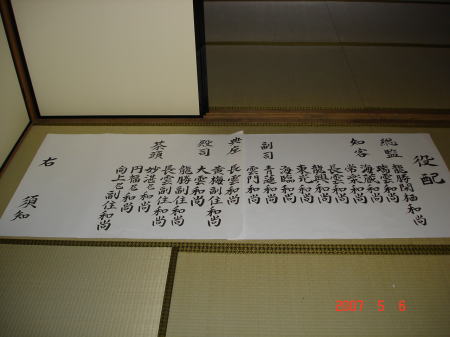 役配
総監 龍勝閑栖和尚
瑞雲和尚
海蔵和尚
知客 常栄和尚
長雲和尚
龍興和尚
東光和尚
副司 海臨和尚
青蓮和尚
雲門和尚
典座 長雲和尚
黄梅副住和尚
殿司 大雲和尚
龍勝副住和尚
茶頭 長雲副住和尚
妙湛和尚
円福和尚
向上副住和尚
右 須知
2007 5 6